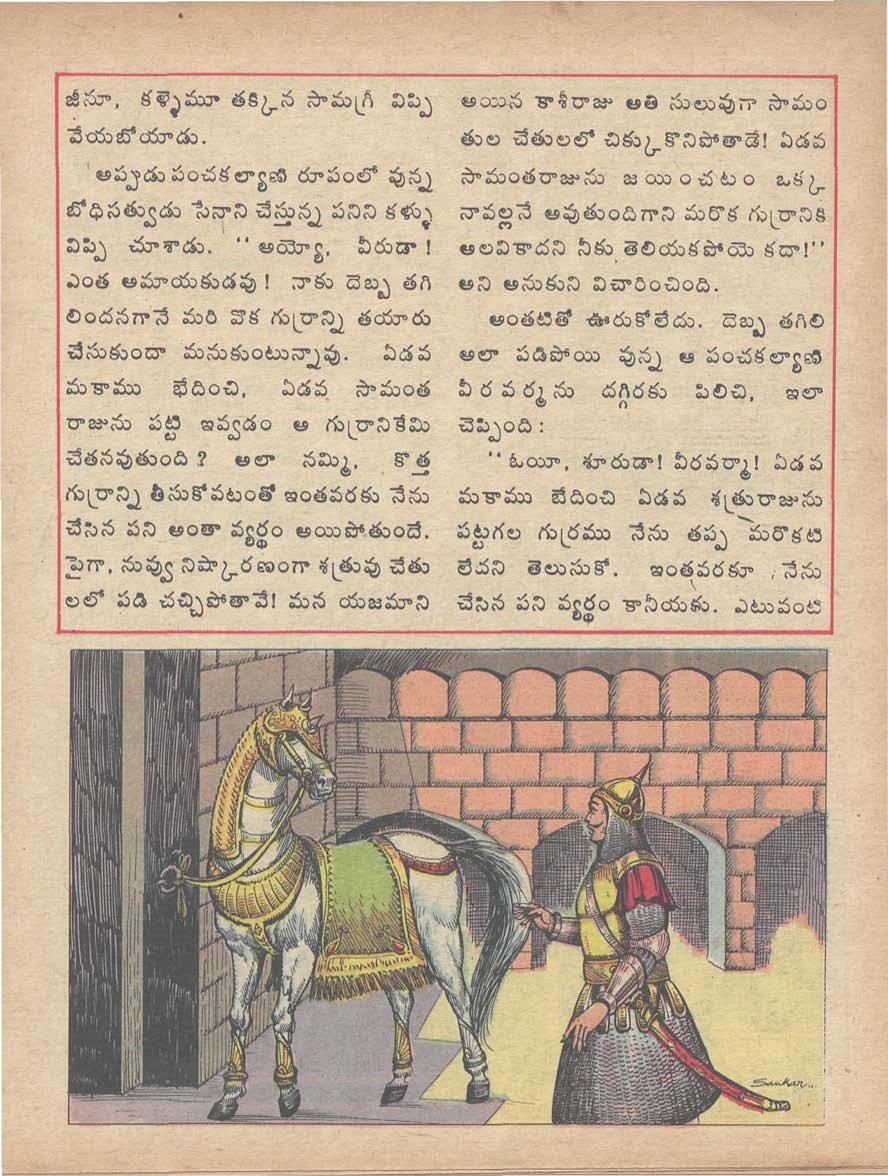 జీనూ, కళ్ళెమూ తక్కిన సామగ్రీ విప్పి
వేయబోయాడు.
అప్పుడు పంచకల్యాణి రూపంలో వున్న
బోధిసత్వుడు సేనాని చేస్తున్న పనిని కళ్ళు
విప్పి చూశాడు. "అయ్యో, వీరుడా!
ఎంత అమాయకుడవు! నాకు దెబ్బ తగి
లిందనగానే మరి వొక గుర్రాన్ని తయారు
చేసుకుందా మనుకుంటున్నావు. ఏడవ
మకాము భేదించి, ఏడవ సామంత
రాజును పట్టి ఇవ్వడం ఆ గుర్రానికేమి
చేతనవుతుంది? అలా నమ్మి, కొత్త
గుర్రాన్ని తీసుకోవటంతో ఇంతవరకు నేను
చేసిన పని అంతా వ్యర్థం అయిపోతుందే.
పైగా, నువ్వు నిష్కారణంగా శత్రువు చేతు
లలో పడి చచ్చిపోతావే! మన యజమాని
అయిన కాశీరాజు అతి సులువుగా సామం
తుల చేతులలో చిక్కుకొనిపోతాడే! ఏడవ
సామంతరాజును జయించటం ఒక్క
నావల్లనే అవుతుందిగాని మరొక గుర్రానికి
అలవికాదని నీకు తెలియకపోయె కదా!"
అని అనుకుని విచారించింది.
అంతటితో ఊరుకోలేదు. దెబ్బ తగిలి
అలా పడిపోయి వున్న ఆ పంచకల్యాణి
వీరవర్మను దగ్గిరకు పిలిచి, ఇలా
చెప్పింది:
"ఓయీ, శూరుడా! వీరవర్మా! ఏడవ
మకాము బేదించి ఏడవ శత్రురాజును
పట్టగల గుర్రము నేను తప్ప మరొకటి
లేదని తెలుసుకో. ఇంతవరకూ నేను
చేసిన పని వ్యర్థం కానీయకు. ఎటువంటి
Sankar...